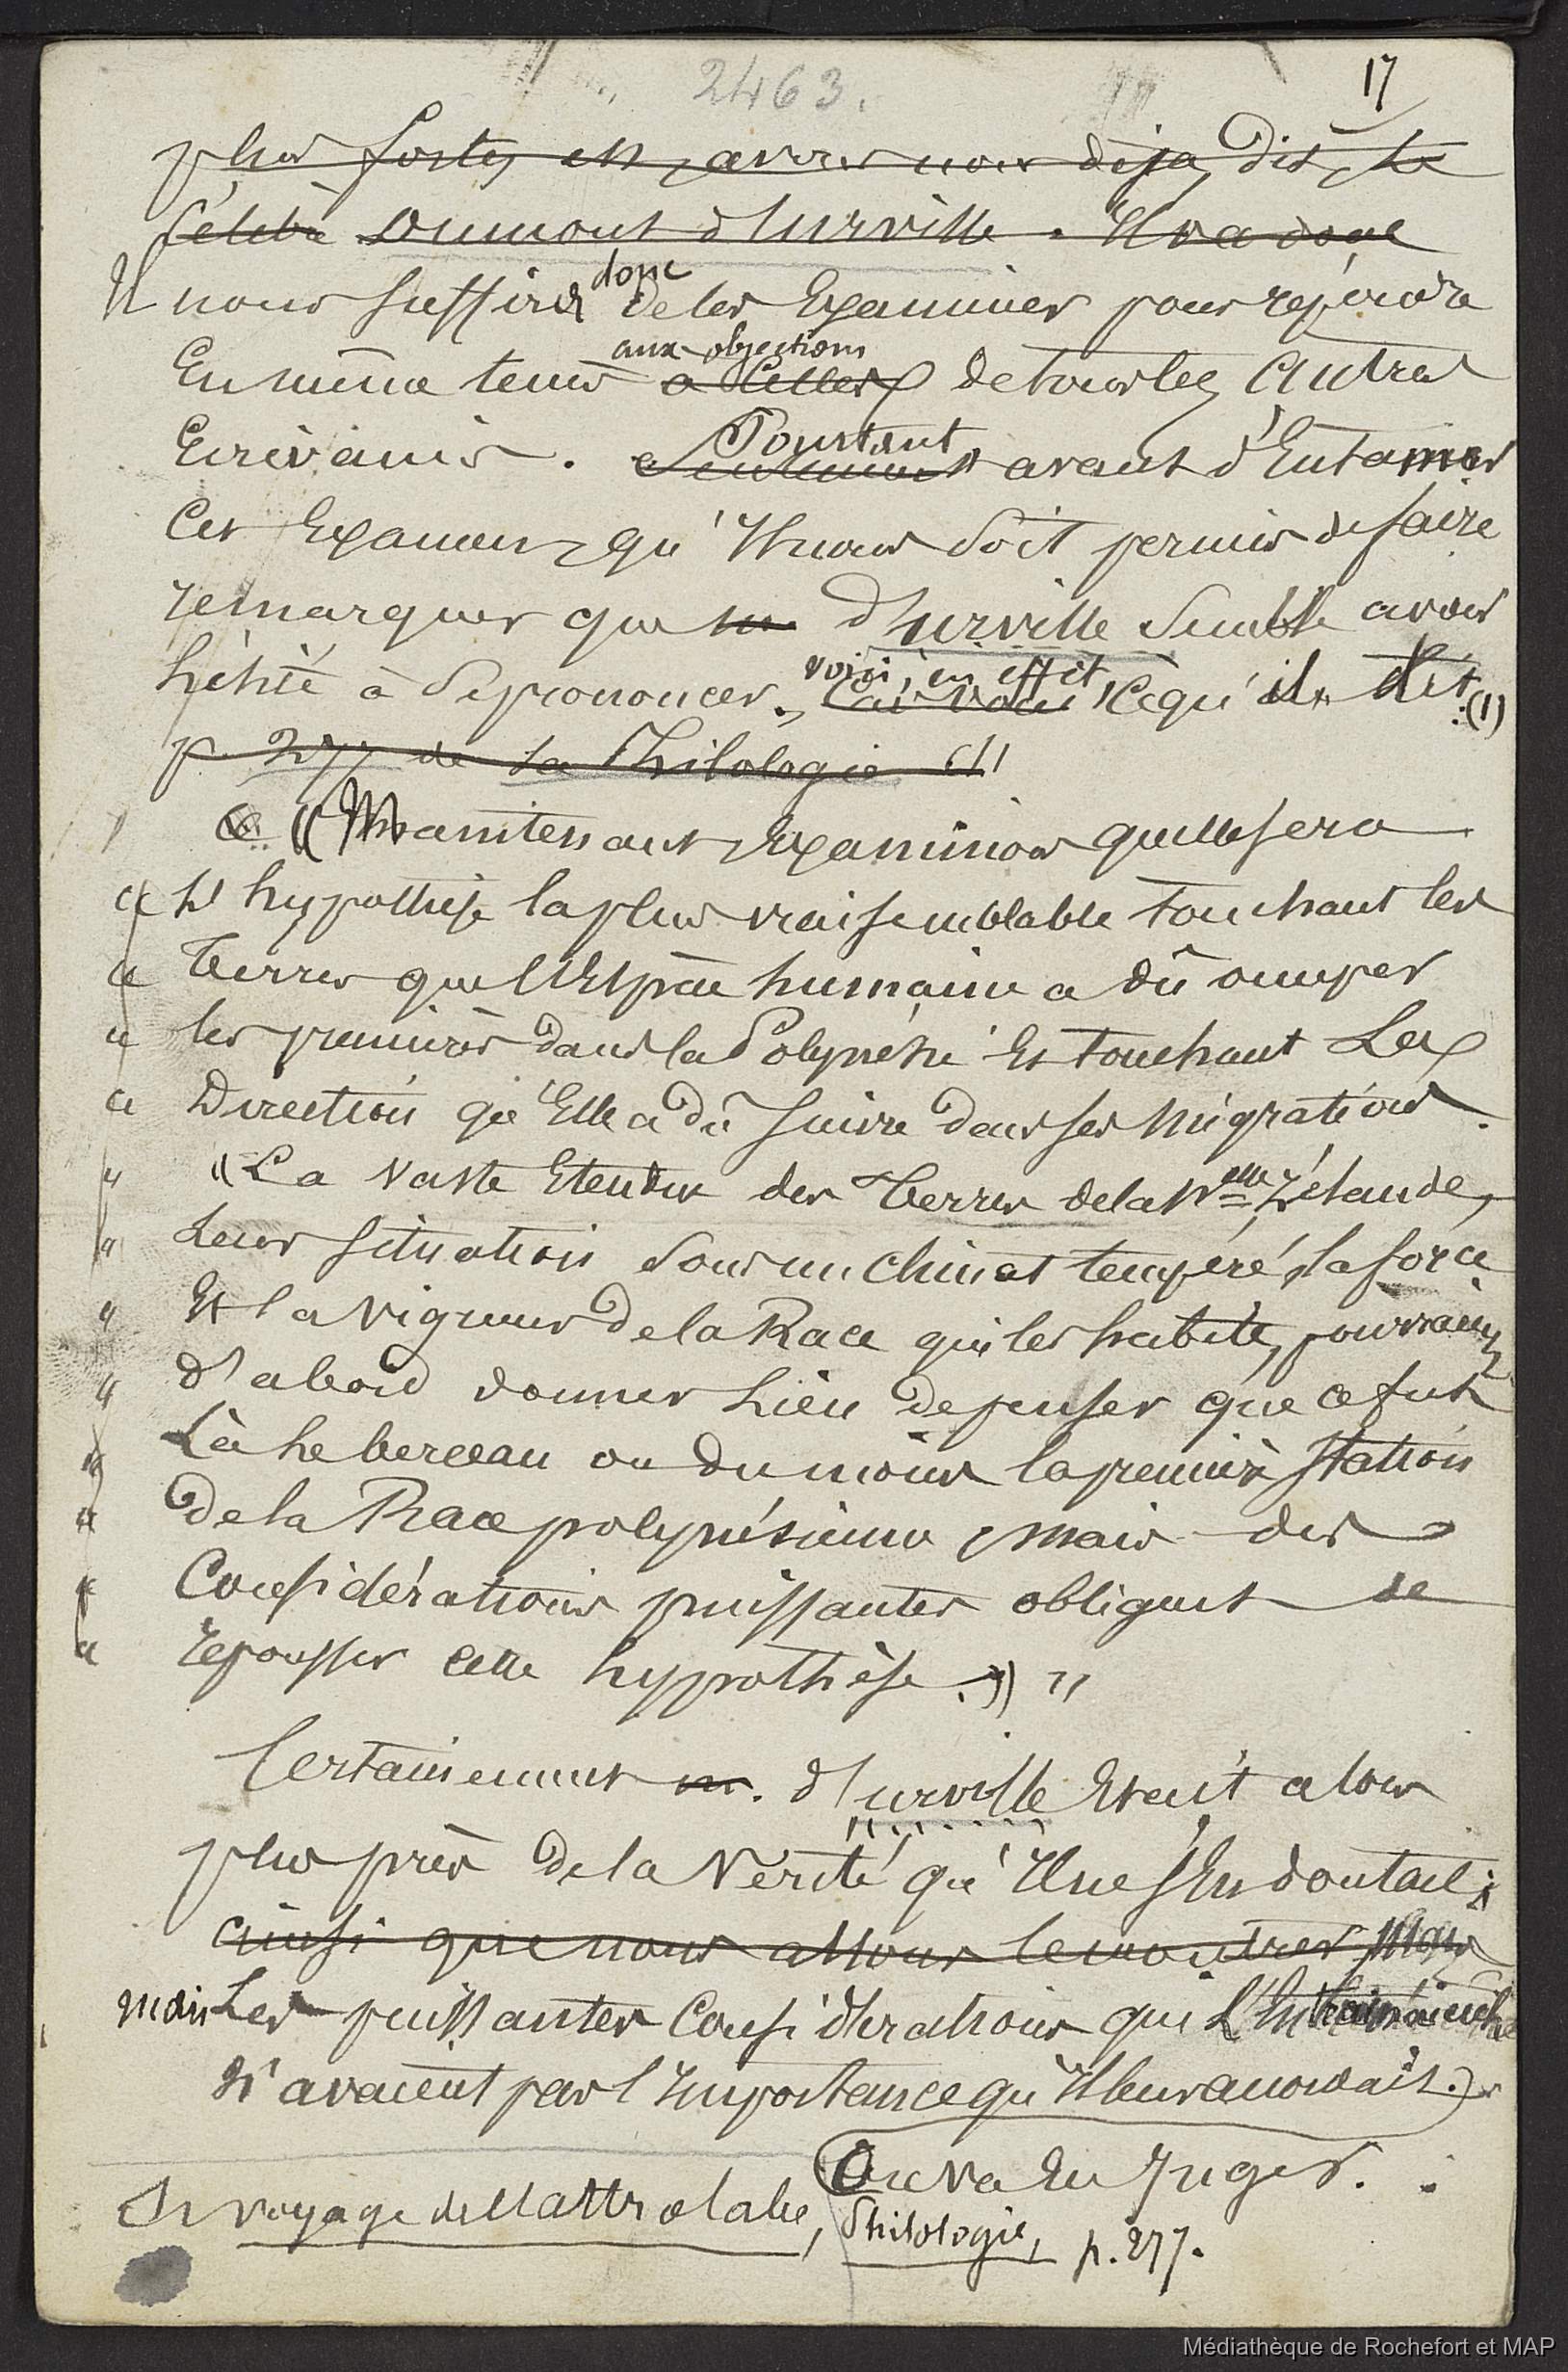 2463.
17
plus fortes en, avons nous déjà dit, le
Célèbre Dumont d'Urville. Il va donc
donc
Il nous suffira de les Examiner pour répondre
aux objections
En même tems à celles de tous les autres
Pourtant
Ecrivains. Seulement avant d'Entamer
Cet Examen, qu'Il nous soit permis de faire
remarquer que m. d'urville semble avoir
voici, en effet,
hésité à se prononcer. Car voici Ce qu'il dit: (1)
p. 277 de la Philologie (1)
« Maintenant Examinons quelle sera
« L'hypothèse la plus vraisemblable touchant les
« terres que l'Espèce humaine a dû occuper
« les premières dans la Polynésie Et touchant La
« Direction qu'Elle a dû suivre dans ses migrations.
« "La vaste Etendue des terres de la Nelle Zélande,
« Leur situation sous un climat tempéré, la force
« Et la vigueur de la Race qui les habite, pourraient
« d'abord donner Lieu de penser que ce fut
« Là le berceau ou du moins la première station
« de la Race polynésienne, mais des
« Considérations puissantes obligent de
« repousser cette hypothèse. »"
Certainement m. d'urville Etait alors
plus près de la Vérité qu'Il ne s'En doutait;
ainsi que nous allons le montrer mais
mais Les puissantes Considérations qui L'Entraînaient
N'avaient pas l'Importance qu'Il leur accordait.
On va En Juger.
(1) voyage de l'astrolabe, Philologie, p. 277.
Médiathèque de Rochefort et MAP